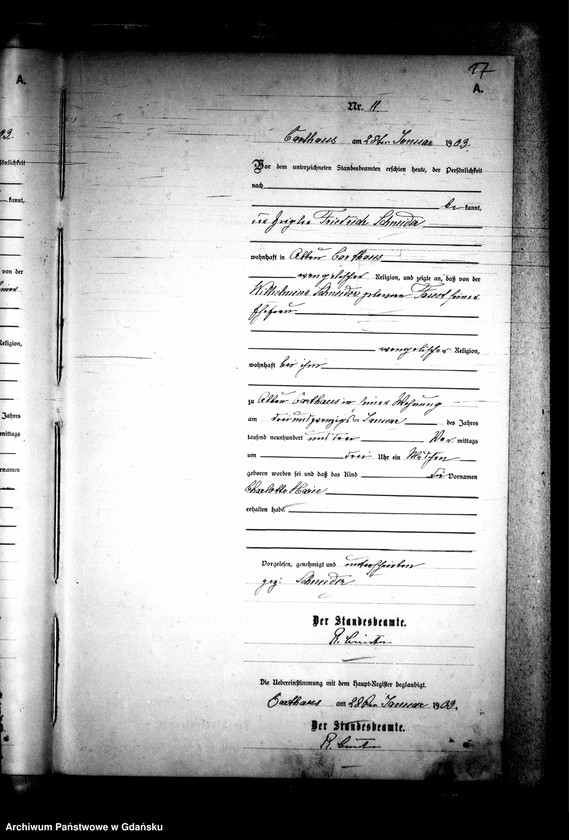 17
A.
Nr. 11.
Carthaus am 28ten Januar 1903.
Vor dem unterzeichneten Standesbeamten erschien heute, der Persönlichkeit
nach
be kannt,
Friedrich Schneider
wohnhaft in Carthaus
evangelischer Religion, und zeigte an, daß von der
Wilhelmine Schneider geborene Faust seiner
Ehefrau
evangelischer Religion,
wohnhaft bei ihm
zu Carthaus in seiner Wohnung
am dreiundzwanzigsten Januar des Jahres
tausend neunhundert und drei Vor mittags
um drei Uhr ein Mädchen
geboren worden sei und daß das Kind die Vornamen
Charlotte Marie
erhalten habe.
Vorgelesen, genehmigt und unterschrieben
gez. Schneider
Der Standesbeamte.
R.
Die Uebereinstimmung mit dem Haupt-Register beglaubigt.
Carthaus am 28ten Januar 1903.
Der Standesbeamte.
R.
A.
kannt,
von der
Religion,
Jahres
mittags
Archiwum Państwowe w Gdańsku